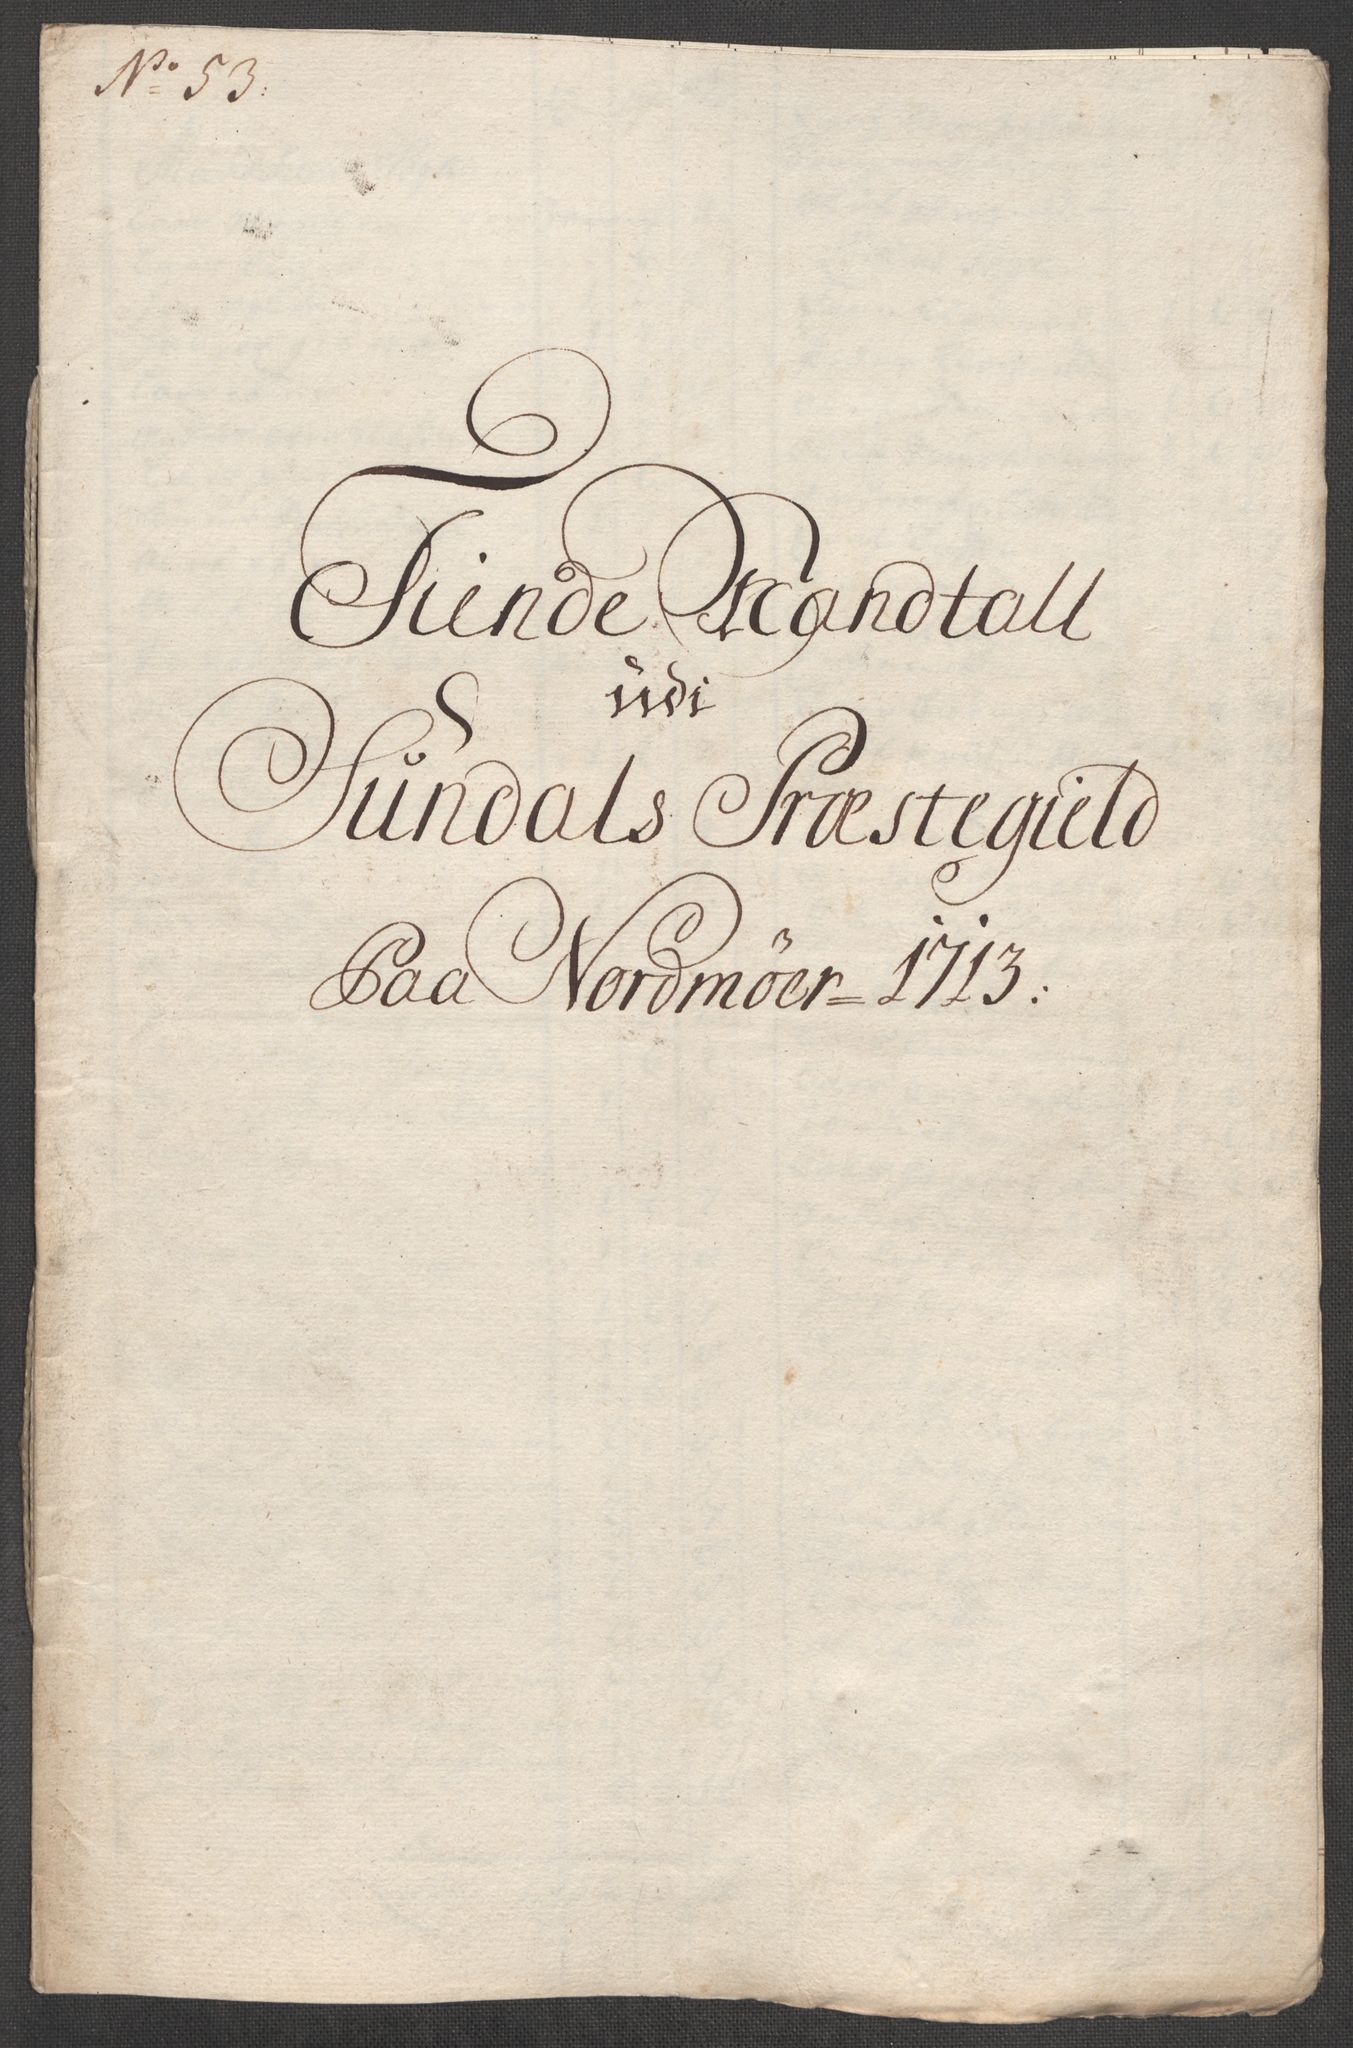 No 53:
Tiende Mandtall
udi
Sundals Præstegield
Paa Nordmöer = 1713: